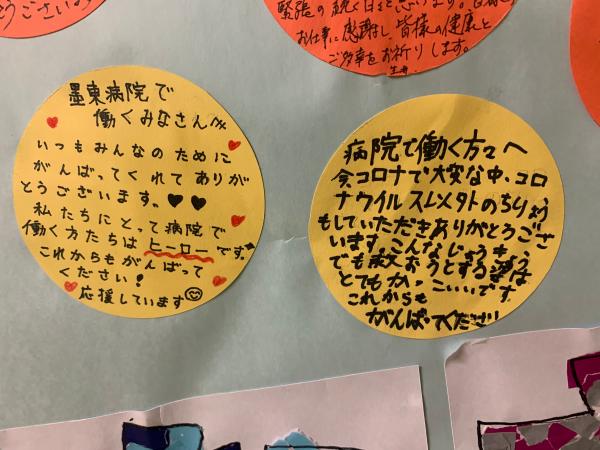 うございます
緊張の続く日々と思います。
お仕事に感謝し、皆様の健康と
ご多幸をお祈りします。
墨東病院で
働くみなさんへ
いつもみんなのために
がんばってくれてありが
とうございます。
私たちにとって病院で
働く方たちはヒーローです。
これからもがんばって
ください!
応援しています
病院で働く方々へ
今コロナで大変な中、コロ
ナウイルス以外のちりょう
もしていただきありがとうござ
います。こんなじょうきょう
でも救おうとする姿は
とてもかっこいいです。
これからも
がんばってください